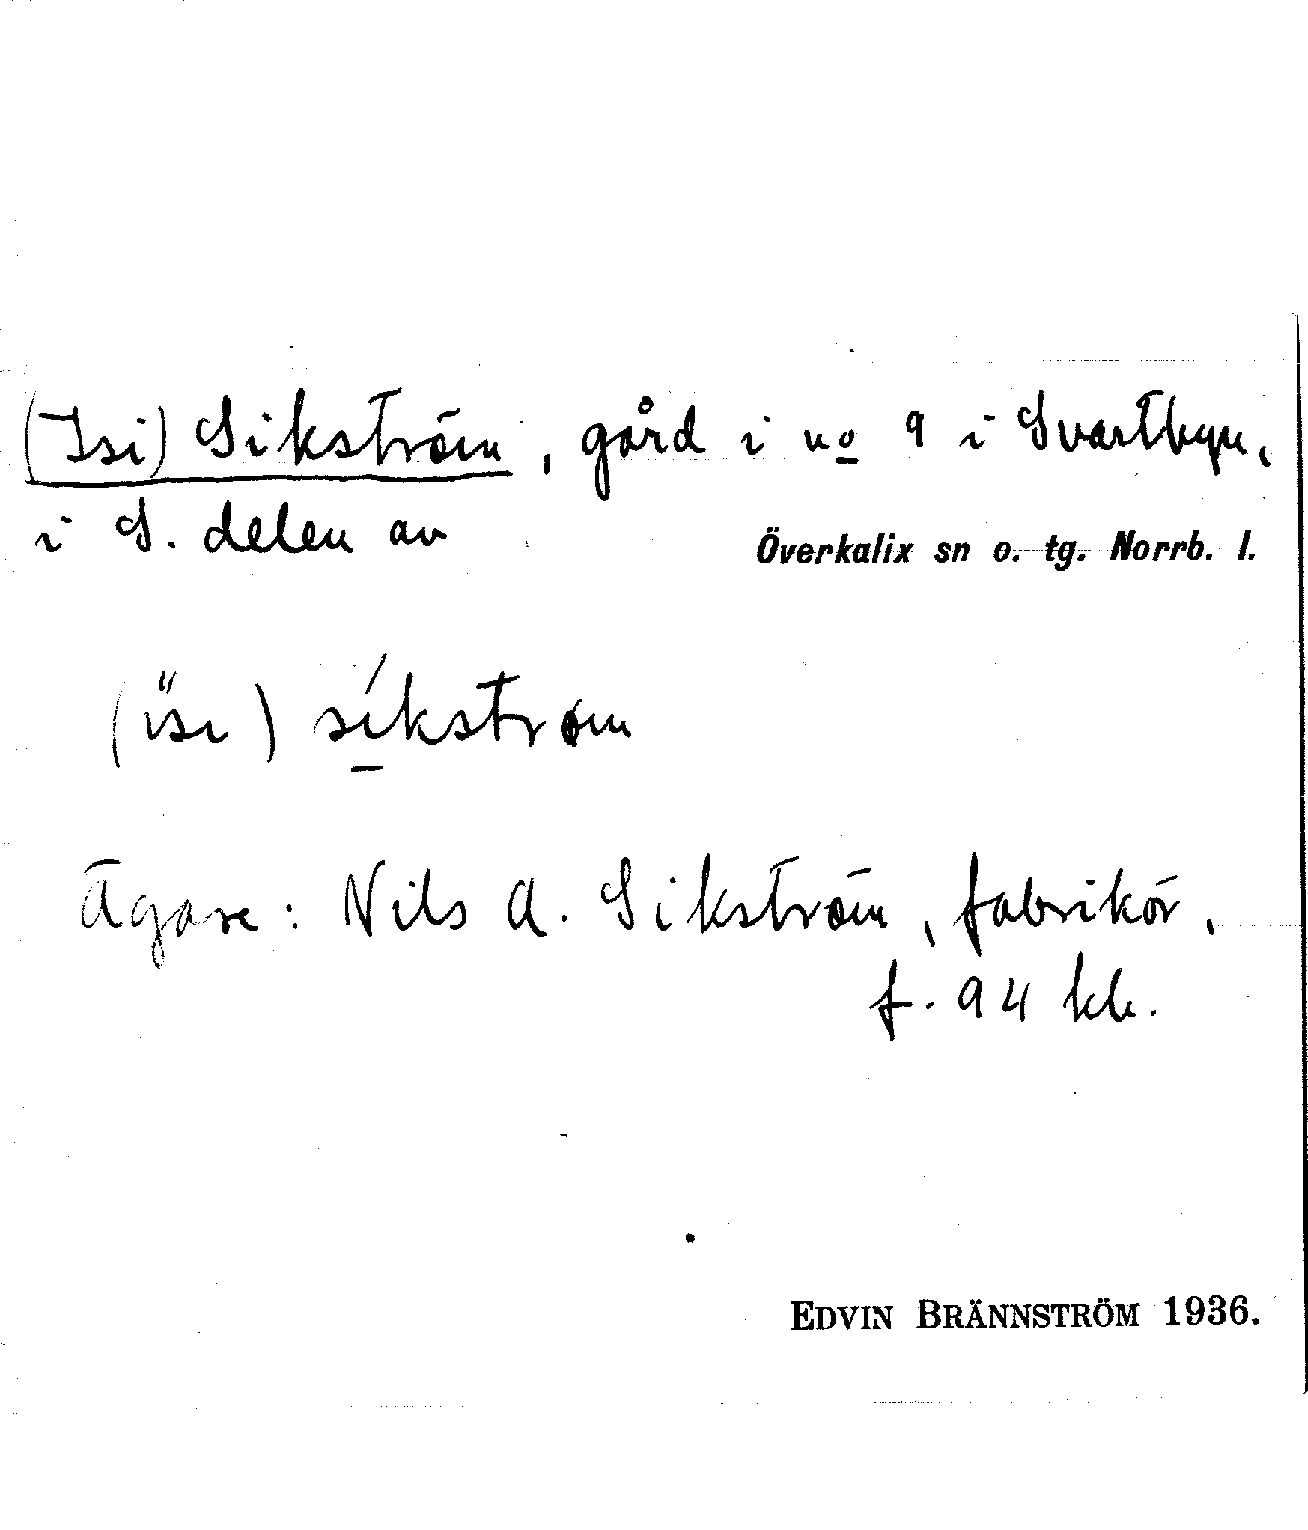 (Isi) Sikström, gård i no 9 i Svartbyn,
i S. delen av
Överkalix sn o. tg. Norrb. l.
(ìsi) síkstrøm
Ägare: Nils A. Sikström, fabrikör,
f. 94 hh.
EDVIN BRÄNNSTRÖM 1936.